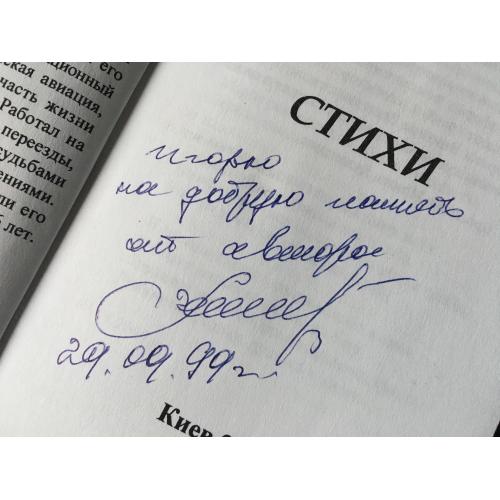 его
ционный
ская авиация,
часть жизни
Работал на
переезды,
судьбами
ениями.
ли его
лет.
СТИХИ
Игорю
на добрую память
от автора
29.09.99г.
Киев